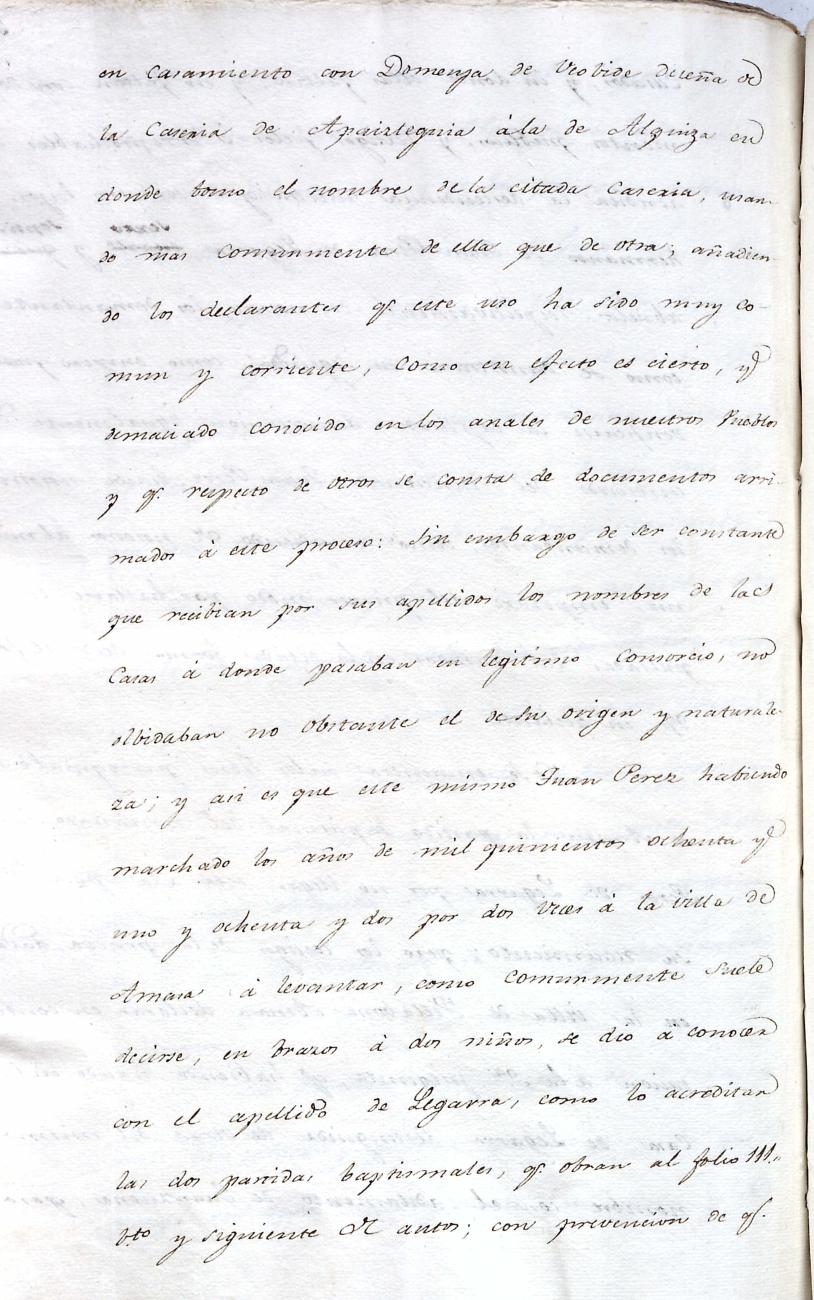 en casamiento con Domenja de Urobide dueña de
la Caseria de Apaizteguia á la de Alquiza en
donde tomo el nombre de la citada Caseria, usan-
do mas comunmente de ella que de otra; añadien-
do los declarantes q.e este uso ha sido muy co-
mun y corriente, como en efecto es cierto, y
demaciado conocido en los anales de nuestros Pueblos
y q.e respecto de otros se consta de documentos arri-
mados á este proceso: sin embargo de ser constante
que recibian por sus apellidos los nombres de las
Casas á donde pasaban en legitimo consorcio, no
olbidaban no obstante el de su origen y naturale-
za; y asi es que este mismo Juan Perez habiendo
marchado los años de mil quinientos ochenta y
uno y ochenta y dos por dos veces á la villa de
Amasa á levantar, como comunmente suele
decirse, en brazos á dos niños, se dió á conocer
con el apellido de Legarra, como lo acreditan
las dos partidas baptismales, q.e obran al folio 111.,
b.to y siguiente de autos; con prevencion de q.e